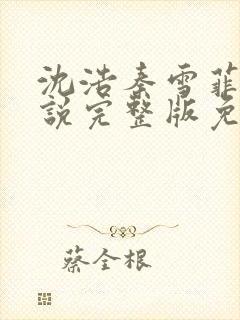 沈浩秦雪菲
说完整版免
蔡全根